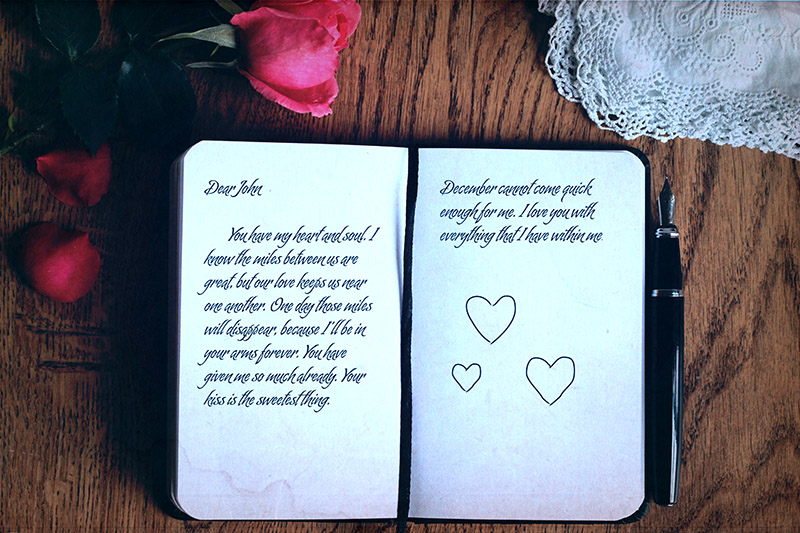 Dear John
You have my heart and soul. I
know the miles between us are
great, but our love keeps us near
one another. One day those miles
will disappear, because I'll be in
your arms forever. You have
given me so much already. Your
kiss is the sweetest thing.
December cannot come quick
enough for me. I love you with
everything that I have within me.